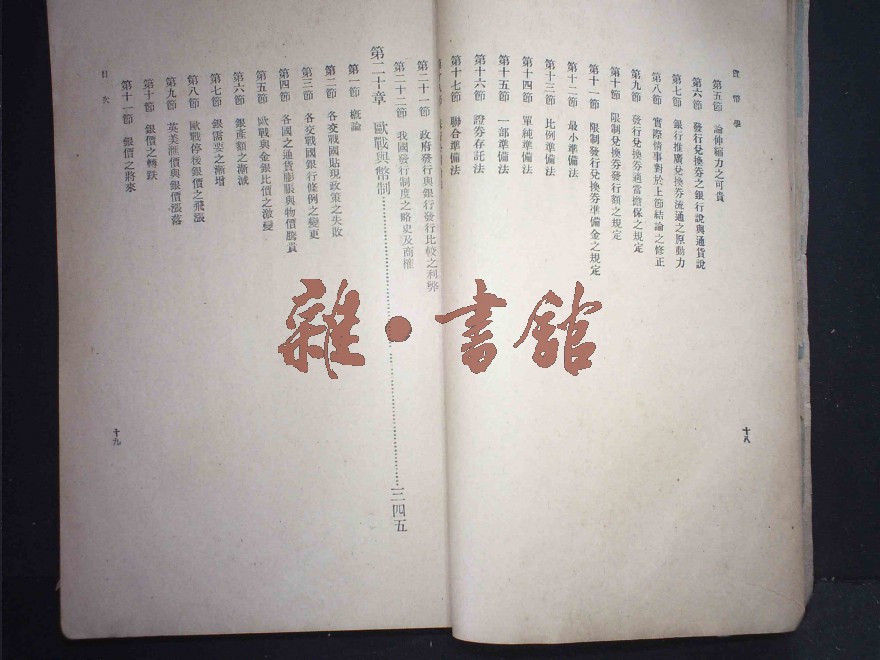 貨幣學
第五節 論伸縮力之可貴
第六節 發行兌換券之銀行說與通貨說
第七節 銀行推廣兌換券流通之原動力
第八節 實際情事對於上節結論之修正
第九節 發行兌換券適當擔保之規定
第十節 限制兌換券發行額之規定
第十一節 限制發行兌換券準備金之規定
第十二節 最小準備法
第十三節 比例準備法
第十四節 單純準備法
第十五節 一部準備法
第十六節 證券存託法
第十七節 聯合準備法
十八
第二十一節 政府發行與銀行發行比較之利弊
第二十二節 我國發行制度之略史及商榷
第二十章 歐戰與幣制……三四五
第一節 概論
第二節 各交戰國貼現政策之失敗
第三節 各交戰國銀行條例之變更
第四節 各國之通貨膨脹與物價騰貴
第五節 歐戰與金銀比價之激變
第六節 銀產額之漸減
第七節 銀需要之漸增
第八節 歐戰停後銀價之飛漲
第九節 英美滙價與銀價漲落
第十節 銀價之轉跌
第十一節 銀價之將來
目次
十九
雜·書館